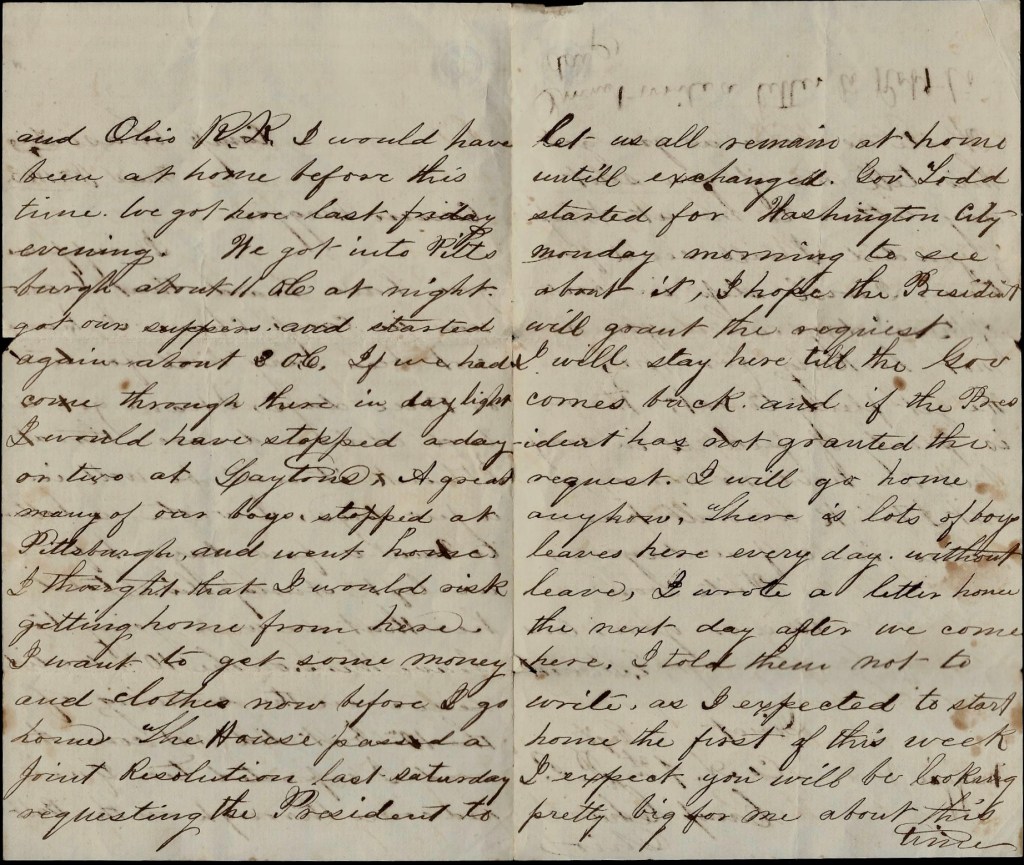 and Ohio R.R. I would have
been at home before this
time. We got here last friday
evening. We got into Pitts
burgh about 11 OC at night.
got our suppers. and started
again about 3 OC. If we had
come through there in daylight
I would have stopped a day
or two at Laytons. A great
many of our boys. stopped at
Pittsburgh, and went home.
I thought that I would risk
getting home from here.
I want to get some money
and clothes now before I go
home. The House passed a
Joint Resolution last saturday
requesting the President to
let us all remain at home
untill exchanged. Gov Todd
started for Washington City
monday morning to see
about it, I hope the President
will grant the request.
I will stay here till the Gov
comes back. and if the Pres
ident has not granted the
request. I will go home
anyhow, There is lots of boys
leaves here every day. without
leave, I wrote a letter home
the next day after we come
here, I told them not to
write. as I expected to start
home the first of this week
I expect you will be looking
pretty big for me about this
time